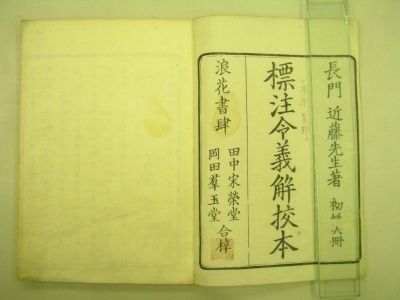 長門 近藤先生著 初帙六冊
標注令義解挍本
浪花書肆
田中宋榮堂
岡田羣玉堂
合梓